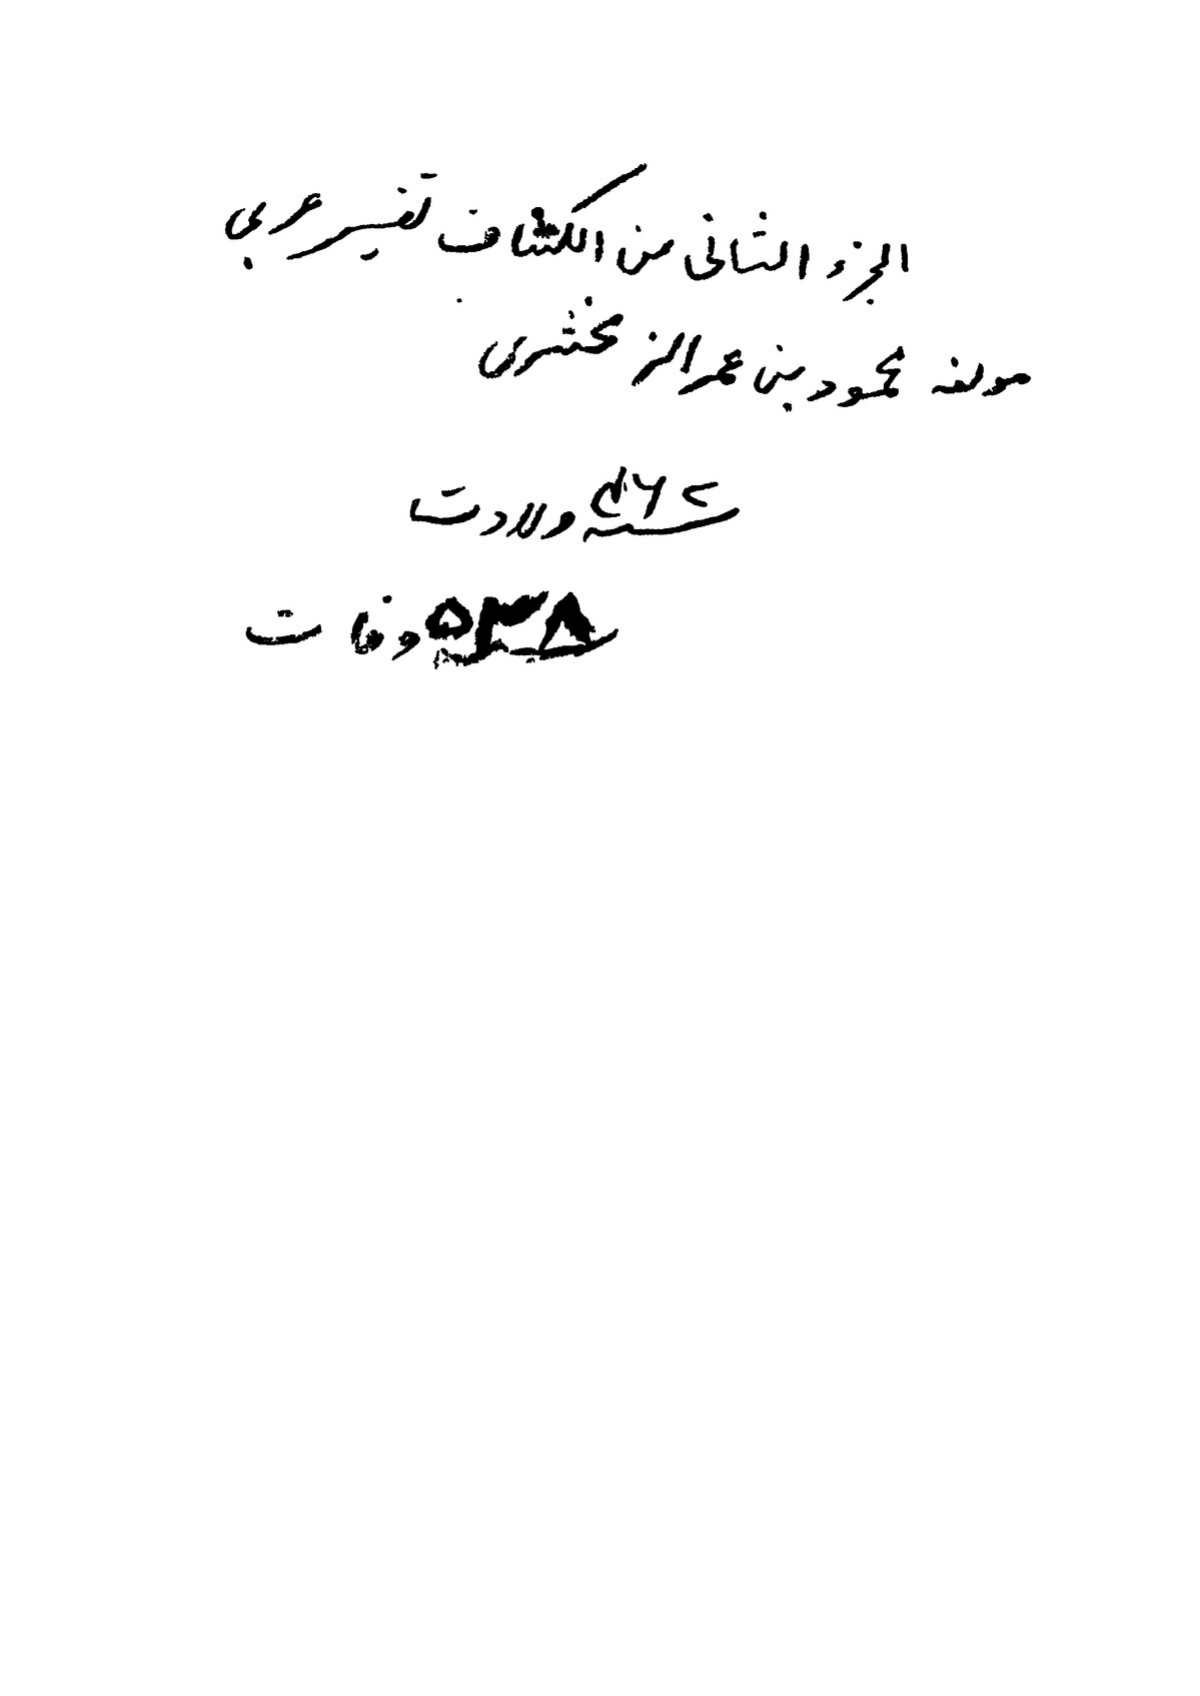 الجزء الثانی من الکشاف تفسیر عربی
مولفه محمود بن عمر الزمخشری
سنه ۴۶۲ ولادت
سنه ۵۳۸ وفات